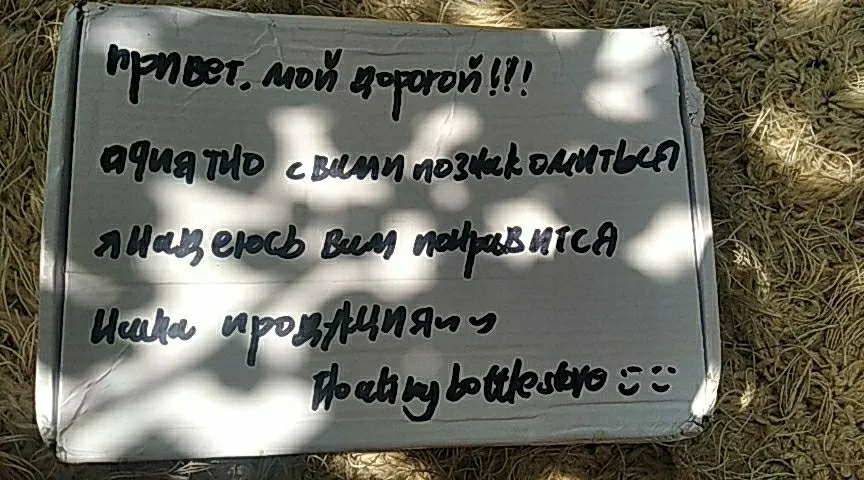 привет, мой дорогой!!!
с вами познакомиться
я надеюсь вам понравится
наша продукция~~
Floating bottle store